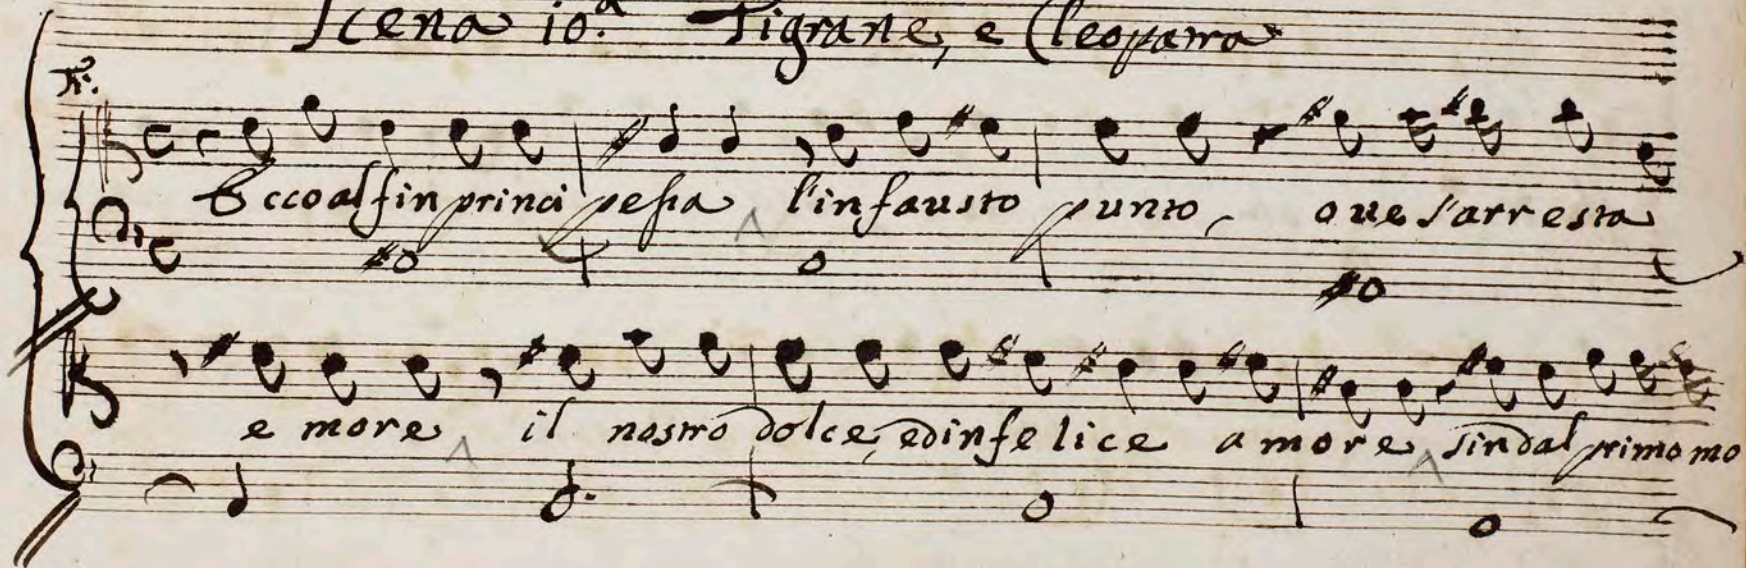 Scena 10.ª Tigrane, e Cleopatra
T.
Ecco al fin principessa l'infausto punto, oue s'arresta
e more il nostro dolce, ed infelice amore sin dal primo mo